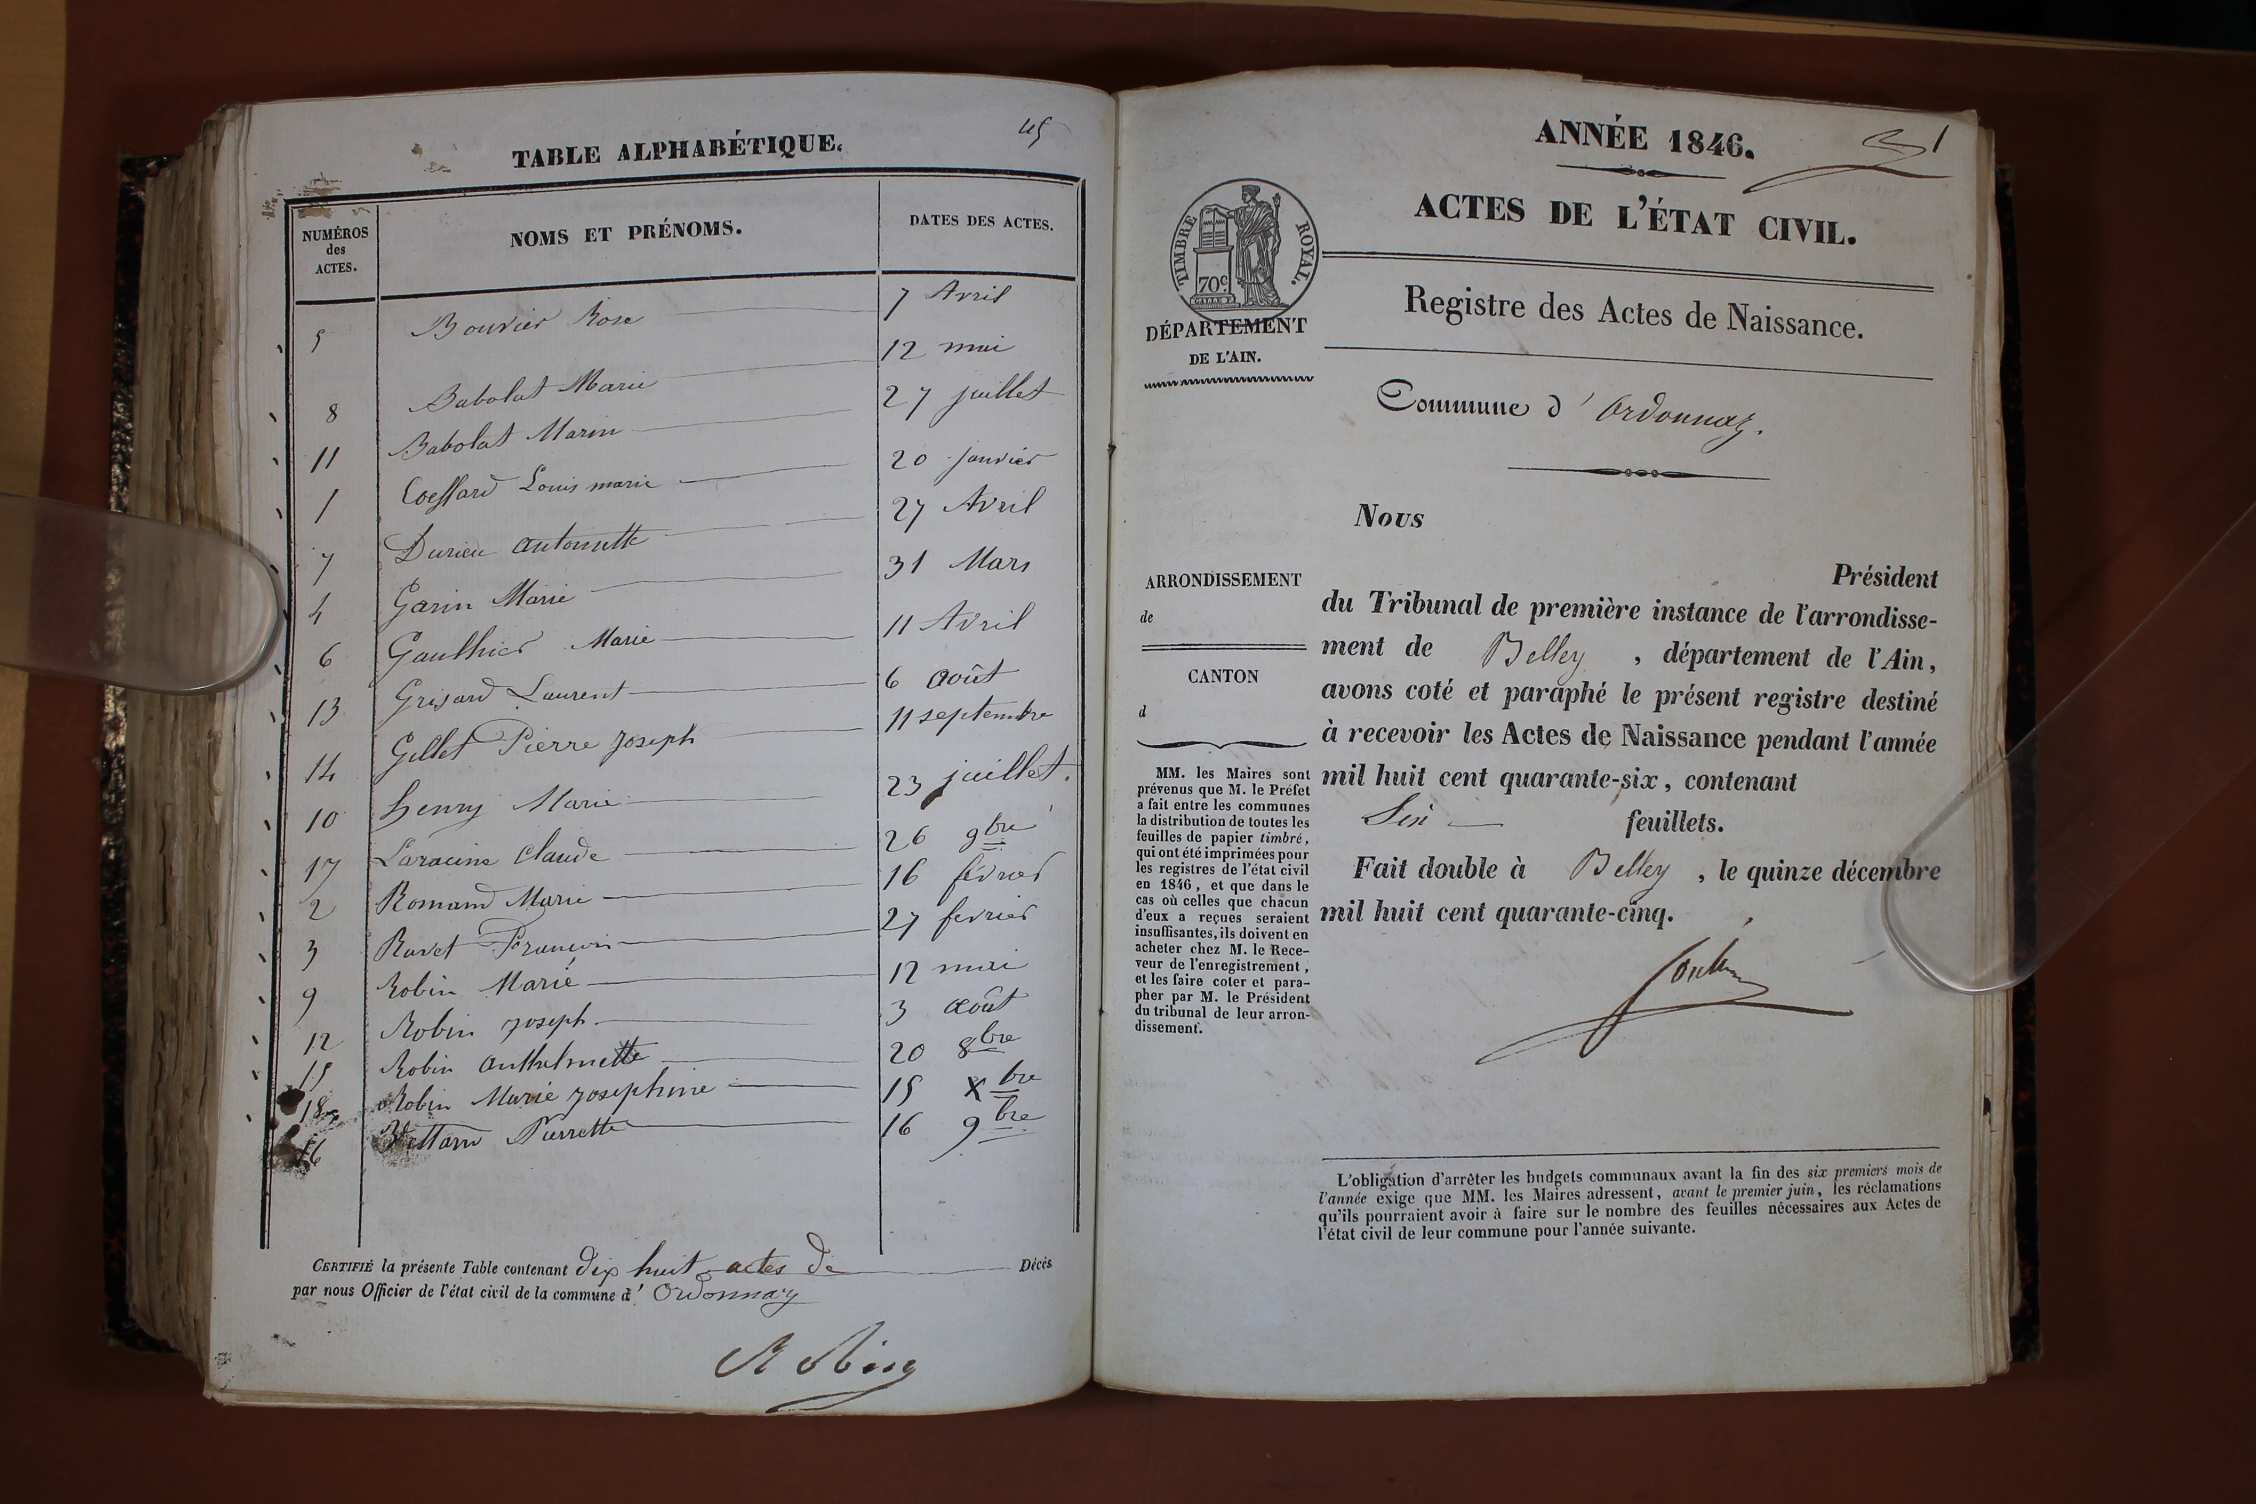 45
TABLE ALPHABÉTIQUE.
NUMÉROS des ACTES. NOMS ET PRÉNOMS. DATES DES ACTES.
5 Bouvier Rose 7 Avril
8 Babolat Marie 12 mai
11 Babolat Marin 27 juillet
1 Coessard Louis marie 20 janvier
7 Durieu antoinette 27 Avril
4 Garin Marie 31 Mars
6 Gaulthier Marie 11 Avril
13 Grisard Laurent 6 août
14 Gillet Pierre Joseph 11 septembre
10 henry Marie 23 juillet.
17 Laracine Claude 26 9bre
2 Romand Marie 16 février
3 Ravet François 27 fevrier
9 Robin Marie 12 mai
12 Robin Joseph 3 août
15 Robin anthelmette 20 8bre
18 Robin Marie Josephine 15 Xbre
16 Pierrette 16 9bre
CERTIFIÉ la présente Table contenant dix huit actes de Décès
par nous Officier de l'état civil de la commune d' Ordonnaz
Robin
1
ANNÉE 1846.
ACTES DE L'ÉTAT CIVIL.
TIMBRE ROYAL.
70c
DÉPARTEMENT
DE L'AIN.
Registre des Actes de Naissance.
Commune d' Ordonnaz.
Nous
Président
du Tribunal de première instance de l'arrondisse-
ment de Belley, département de l'Ain,
avons coté et paraphé le présent registre destiné
à recevoir les Actes de Naissance pendant l'année
mil huit cent quarante-six, contenant
Six feuillets.
Fait double à Belley, le quinze décembre
mil huit cent quarante-cinq.
ARRONDISSEMENT
de
CANTON
d
MM. les Maires sont
prévenus que M. le Préfet
a fait entre les communes
la distribution de toutes les
feuilles de papier timbré,
qui ont été imprimées pour
les registres de l'état civil
en 1846, et que dans le
cas où celles que chacun
d'eux a reçues seraient
insuffisantes, ils doivent en
acheter chez M. le Rece-
veur de l'enregistrement,
et les faire coter et para-
pher par M. le Président
du tribunal de leur arron-
dissement.
L'obligation d'arrêter les budgets communaux avant la fin des six premiers mois de
l'année exige que MM. les Maires adressent, avant le premier juin, les réclamations
qu'ils pourraient avoir à faire sur le nombre des feuilles nécessaires aux Actes de
l'état civil de leur commune pour l'année suivante.